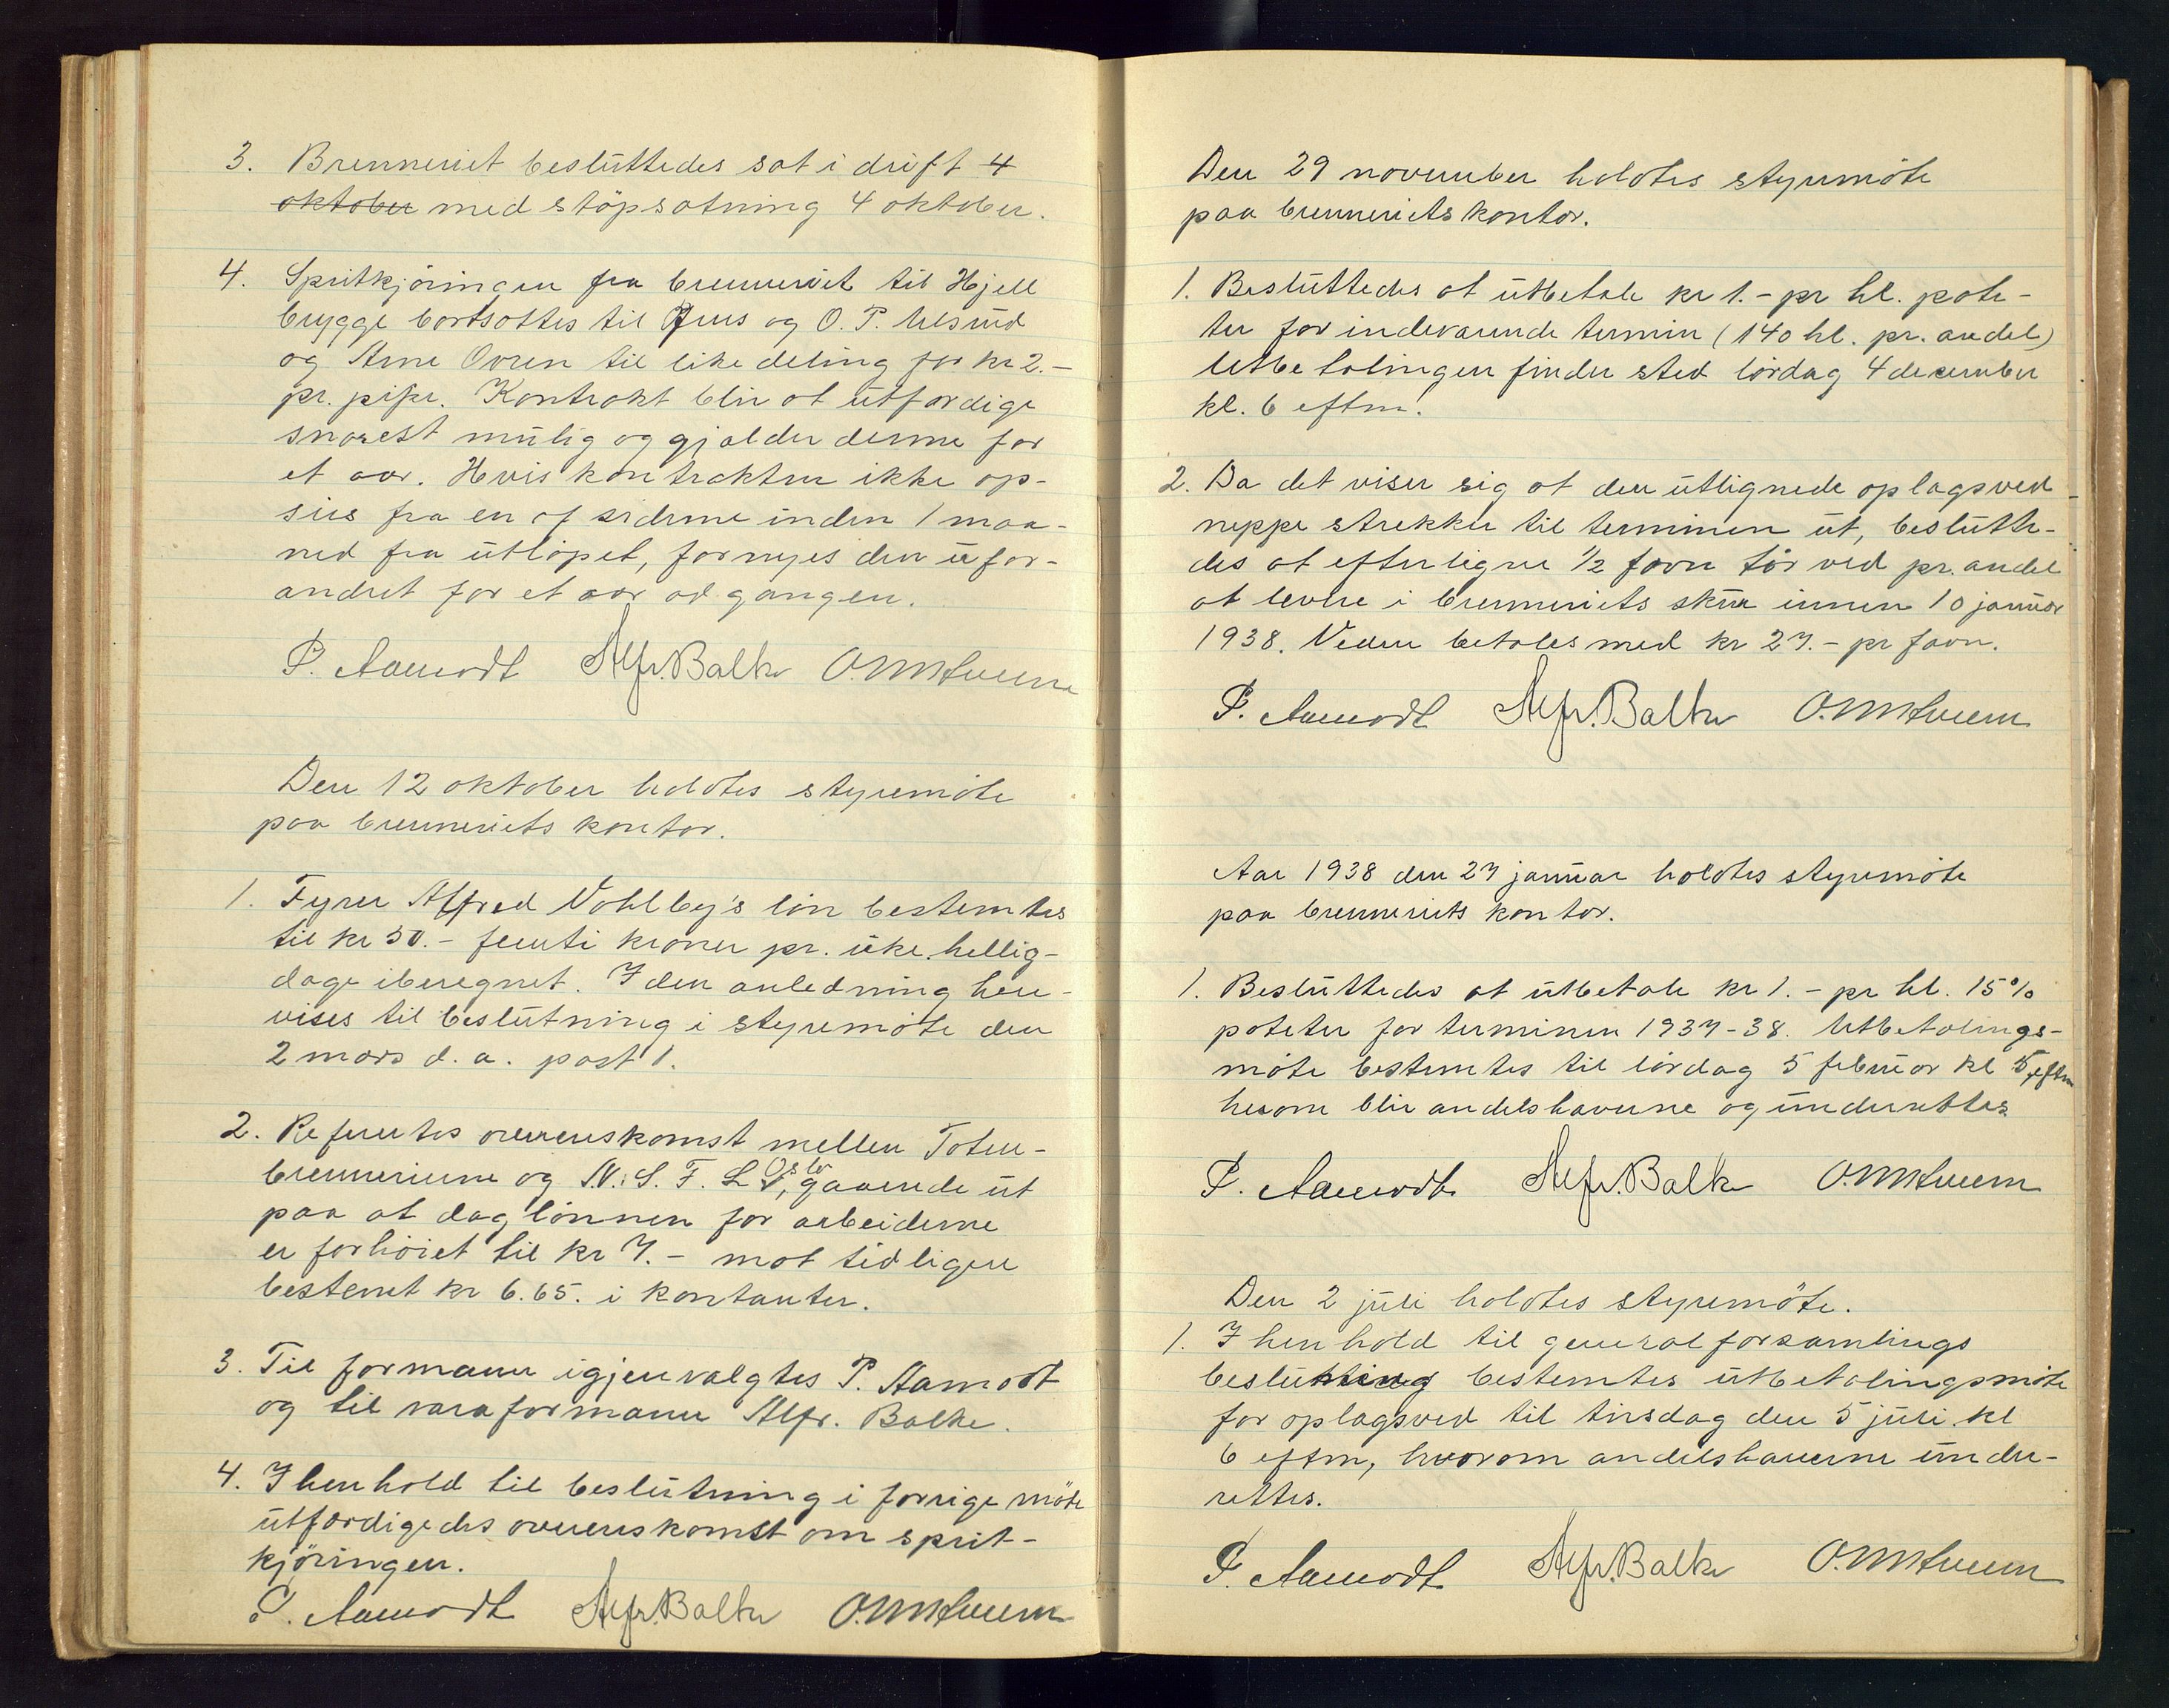 3. Brenneriet besluttedes sat i drift 4
oktober med støpsætning 4 oktober.
4. Spritkjöringen fra brenneriet til Hjell
brygge bortsattes til Jens og O. P. Ulsrud
og Arne Ovren til like deling for kr 2.-
pr. pipe. Kontrakt blir at utfærdige
snarest mulig og gjælder denne for
et aar. Hvis kontrakten ikke op-
sies fra en af siderne inden 1 maa-
ned fra utlöpet, fornyes den ufor-
andret for et aar ad gangen.
P. Aamodt Alfr. Balke
Den 12 oktober holdtes styremöte
paa brenneriets kontor.
1. Fyrer Alfred Vohlby's lön bestemtes
til kr 50.- femti kroner pr. uke hellig-
dage iberegnet. I den anledning hen-
vises til beslutning i styremöte den
2 mars d. a. post 1.
2. Refertes overenskomst mellem Toten-
brenneriene og N. S. F. L Oslo, gaaende ut
paa at daglönnen for arbeiderne
er forhöiet til kr 7.- mot tidligere
bestemt kr 6.65. i kontanter.
3. Til formann igjenvalgtes P. Aamodt
og til varaformann Alfr. Balke.
4. I henhold til beslutning i forrige möte
utfærdigedes overenskomst om sprit-
kjöringen.
P. Aamodt Alfr. Balke
Den 29 november holdtes styremöte
paa brenneriets kontor.
1. Besluttedes at utbetale kr 1.- pr hl. pote-
ter for indeværende termin (140 hl. pr. andel)
Utbetalingen finder sted lördag 4 december
kl. 6 eftm.
2. Da det viser sig at den utlignede oplagsved
neppe strekker til terminen ut, beslutte-
des at efterligne 1/2 favn tör ved pr. andel
at levere i brenneriets skur innen 10 januar
1938. Veden betales med kr 27.- pr favn.
P. Aamodt Alfr. Balke
Aar 1938 den 27 januar holdtes styremöte
paa brenneriets kontor.
1. Besluttedes at utbetale kr 1.- pr hl. 15%
poteter for terminen 1937-38. Utbetalings-
möte bestemtes til lördag 5 februar kl 5 eftm
herom blir andelshaverne og underettes
P. Aamodt Alfr. Balke
Den 2 juli holdtes styremöte.
1. I henhold til generalforsamlings
beslutning bestemtes utbetalingsmöte
for oplagsved til tirsdag den 5 juli kl
6 eftm, hvorom andelshaverne under-
rettes.
P. Aamodt Alfr. Balke